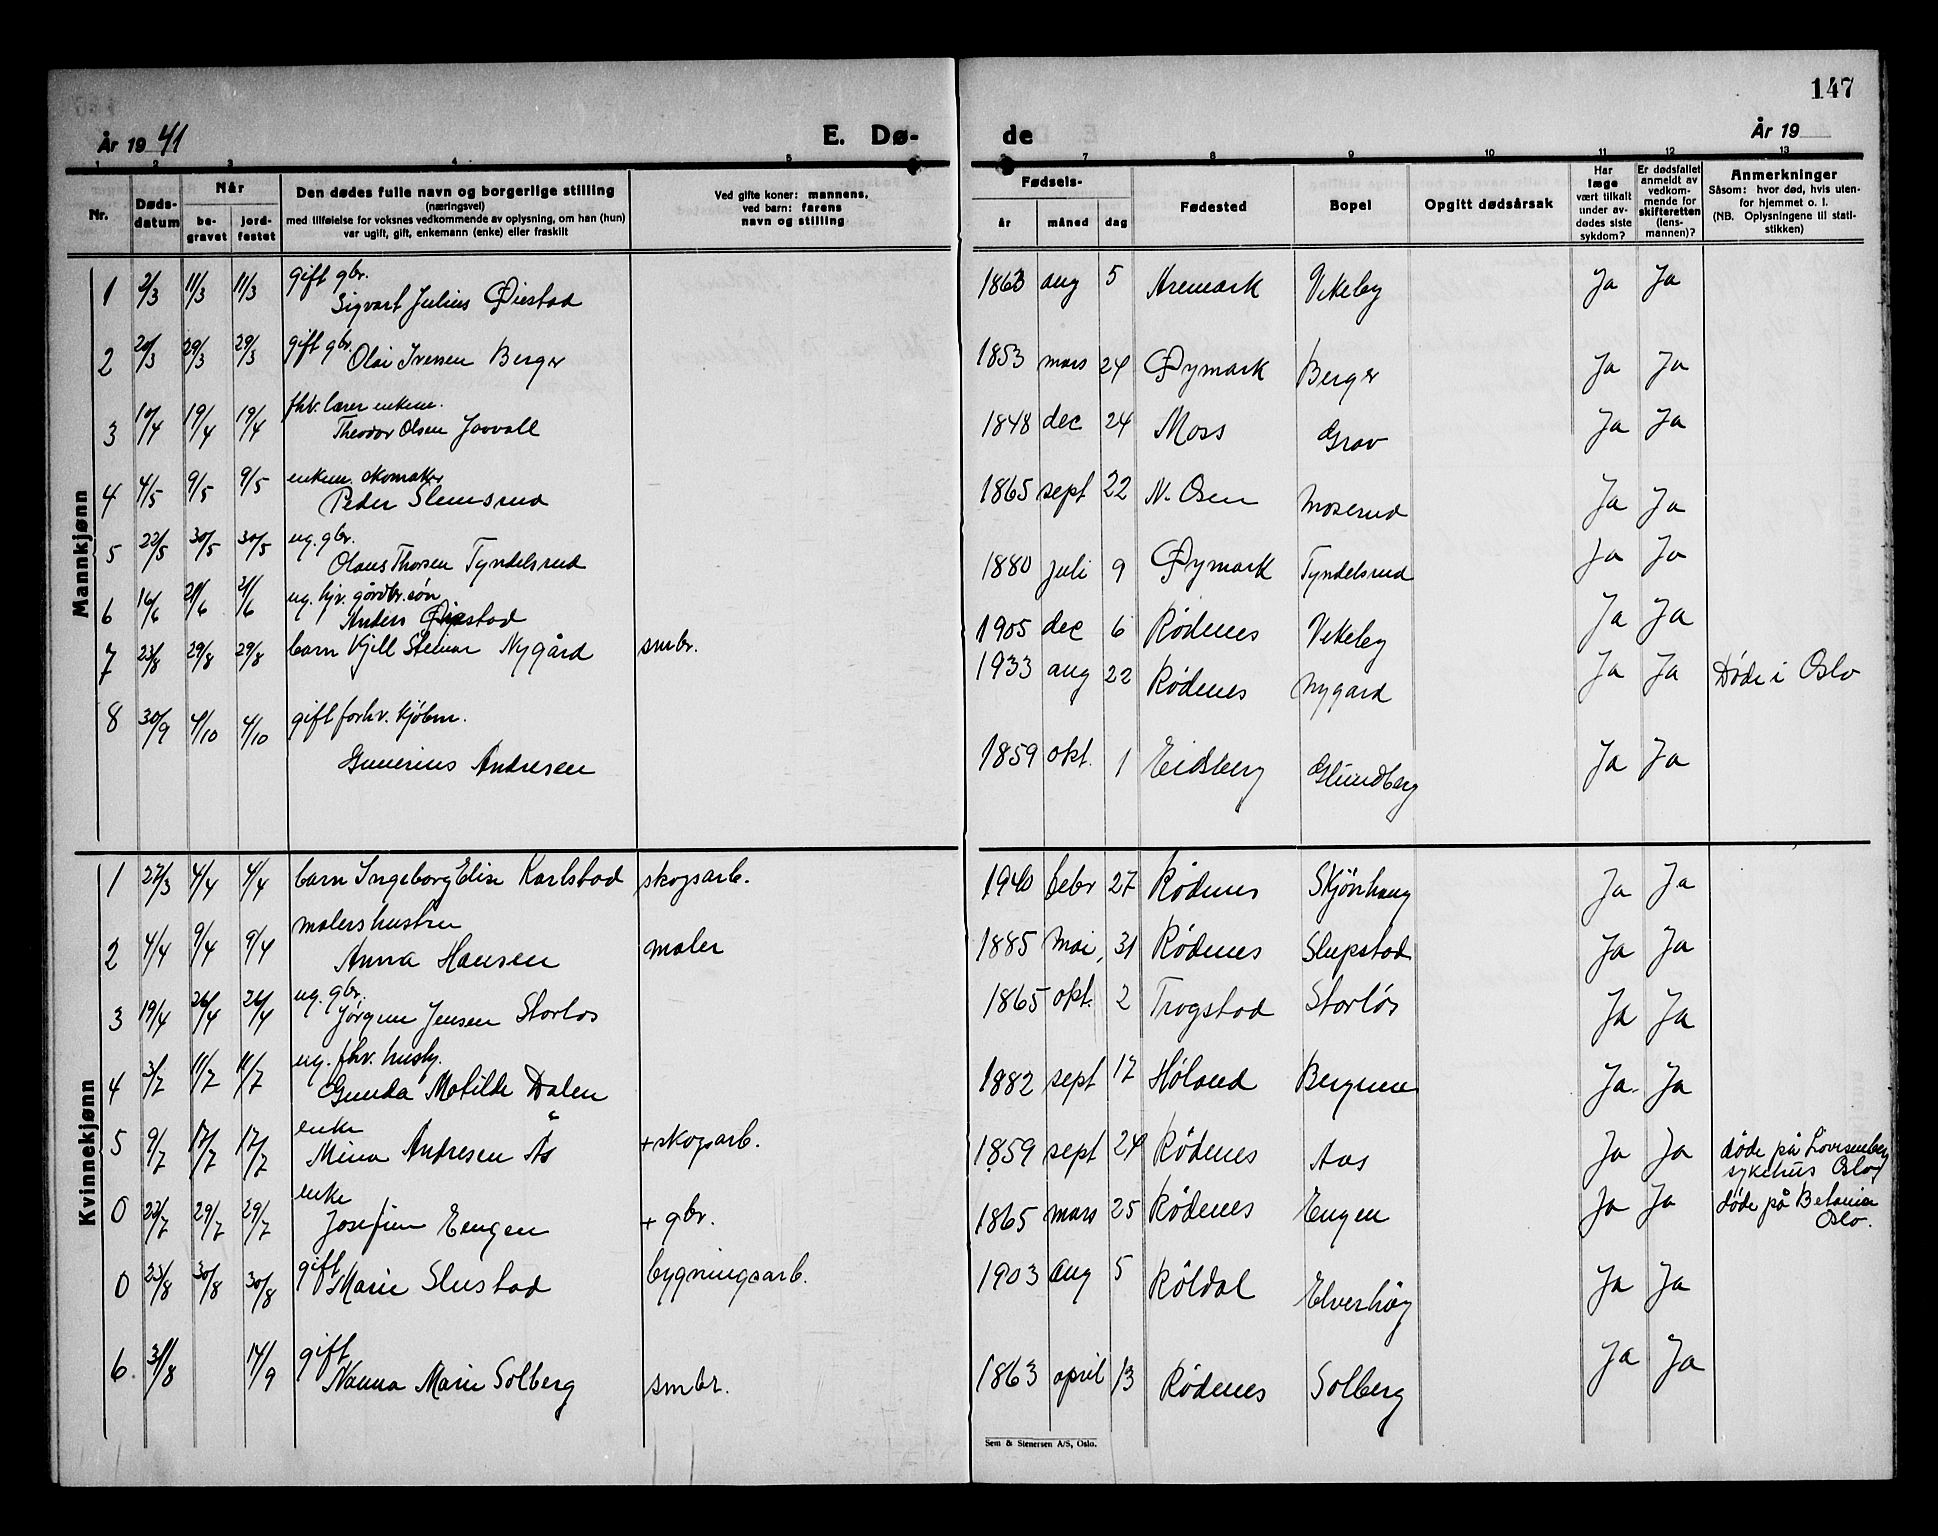 147
År 19 41 E. Dø- de År 19
1 2 3 4 5 7 8 9 10 11 12 13
Nr. Døds-datum Når be-gravet jord-festet Den dødes fulle navn og borgerlige stilling (næringsvei) med tilføielse for voksnes vedkommende av oplysning, om han (hun) var ugift, gift, enkemann (enke) eller fraskilt Ved gifte koner: mannens, ved barn: farens navn og stilling Fødsels- år måned dag Fødested Bopel Opgitt dødsårsak Har læge vært tilkalt under av-dødes siste sykdom? Er dødsfallet anmeldt av vedkom-mende for skifteretten (lens-mannen)? Anmerkninger Såsom: hvor død, hvis uten-for hjemmet o. l. (NB. Oplysningene til stati-stikken)
Mannkjønn
gift gbr.
1 2/3 11/3 11/3 Sigvart Julius Øiestad 1863 aug 5 Aremark Vikeby Ja Ja
gift gbr.
2 20/3 29/3 29/3 Olai Iversen Berger 1853 mars 24 Øymark Berger Ja Ja
fhv. lærer enkem.
3 10/4 19/4 19/4 Theodor Olsen 1848 dec 24 Moss Grav Ja Ja
enkem. skomaker
4 4/5 9/5 9/5 Peder Slemsrud 1865 sept 22 N. Osen Moserud Ja Ja
ug. gbr.
5 22/5 30/5 30/5 Olaus Thorsen Tyndelsrud 1880 juli 9 Øymark Tyndelsrud Ja Ja
ug. hjv. gårdbr. søn
6 16/6 21/6 21/6 Anders Øiestad 1905 dec 6 Rødenes Vikeby Ja Ja
7 23/8 29/8 29/8 barn Kjell Steinar Nygård smbr. 1933 aug 22 Rødenes Nygard Ja Ja Døde i Oslo
gift forhv. kjøbm.
8 30/9 4/10 4/10 Gunerius Andresen 1859 okt. 1 Eidsberg Glundberg Ja Ja
Kvinnekjønn
1 27/3 4/4 4/4 barn Ingeborg Elise Karlstad skogsarb. 1940 febr 27 Rødenes Skjønhaug Ja Ja
malershustru
2 4/4 9/4 9/4 Anna Hansen maler 1885 mai, 31 Rødenes Slupstad Ja Ja
ug. gbr.
3 19/4 26/4 26/4 Jørgine Jensen Storløs 1865 okt. 2 Trøgstad Storløs Ja Ja
ug. fhv. husby.
4 3/7 11/7 11/7 Gunda Matilde Dalen 1882 sept 17 Høland Bergum Ja Ja
enke
5 9/7 17/7 17/7 Mina Andresen Ås + skogsarb. 1859 sept 24 Rødenes Aas Ja Ja døde på Lovisenberg sykehus Oslo
enke
0 22/7 29/7 29/7 Josefine Engen + gbr. 1865 mars 25 Rødenes Engen Ja Ja døde på Betanien Oslo.
gift
0 23/8 30/8 30/8 Marie Slustad bygningsarb. 1903 aug 5 Røldal Elverhøy Ja Ja
gift
6. 31/8 14/9 Nanna Marie Solberg smbr. 1863 april 13 Rødenes Solberg Ja Ja
Sem & Stenersen A/S, Oslo.